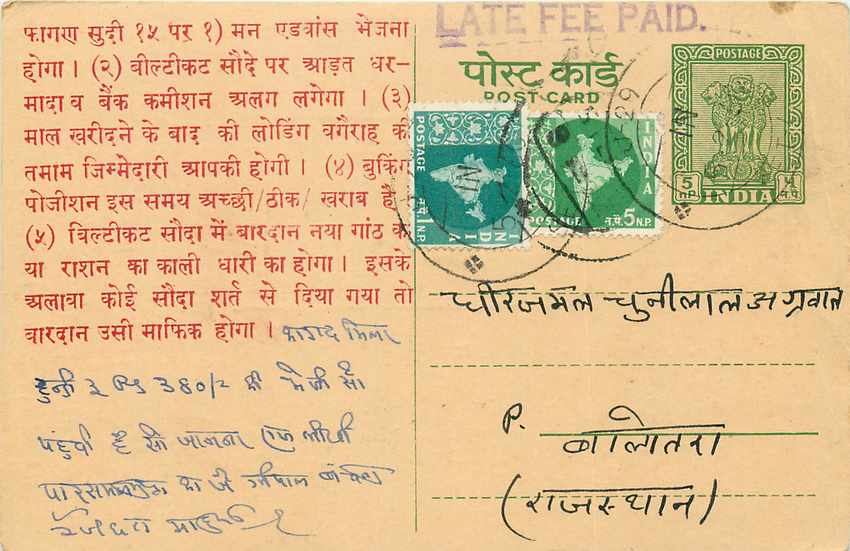 फागण सुदी १५ पर १) मन एडवांस भेजना
होगा। (२) बील्टीकट सौदे पर आड़त धर-
मादा व बैंक कमीशन अलग लगेगा। (३)
माल खरीदने के बाद की लोडिंग वगैराह की
तमाम जिम्मेदारी आपकी होगी। (४) बुकिंग
पोजीशन इस समय अच्छी/ठीक/खराब है
(५) बिल्टीकट सौदा में बारदान नया गांठ का
या राशन का काली धारी का होगा। इसके
अलावा कोई सौदा शर्त से दिया गया तो
बारदान उसी माफिक होगा। कागद मिला
हुन्डी ३ 380/=
पहुंची है सो जानना
LATE FEE PAID.
पोस्ट कार्ड
POST CARD
POSTAGE
5 np
INDIA
POSTAGE
1 N.P.
INDIA
INDIA
POSTAGE
न.पै. 5 N.P.
धीरजमल चुनीलाल अग्रवाल
P. बालोतरा
(राजस्थान)